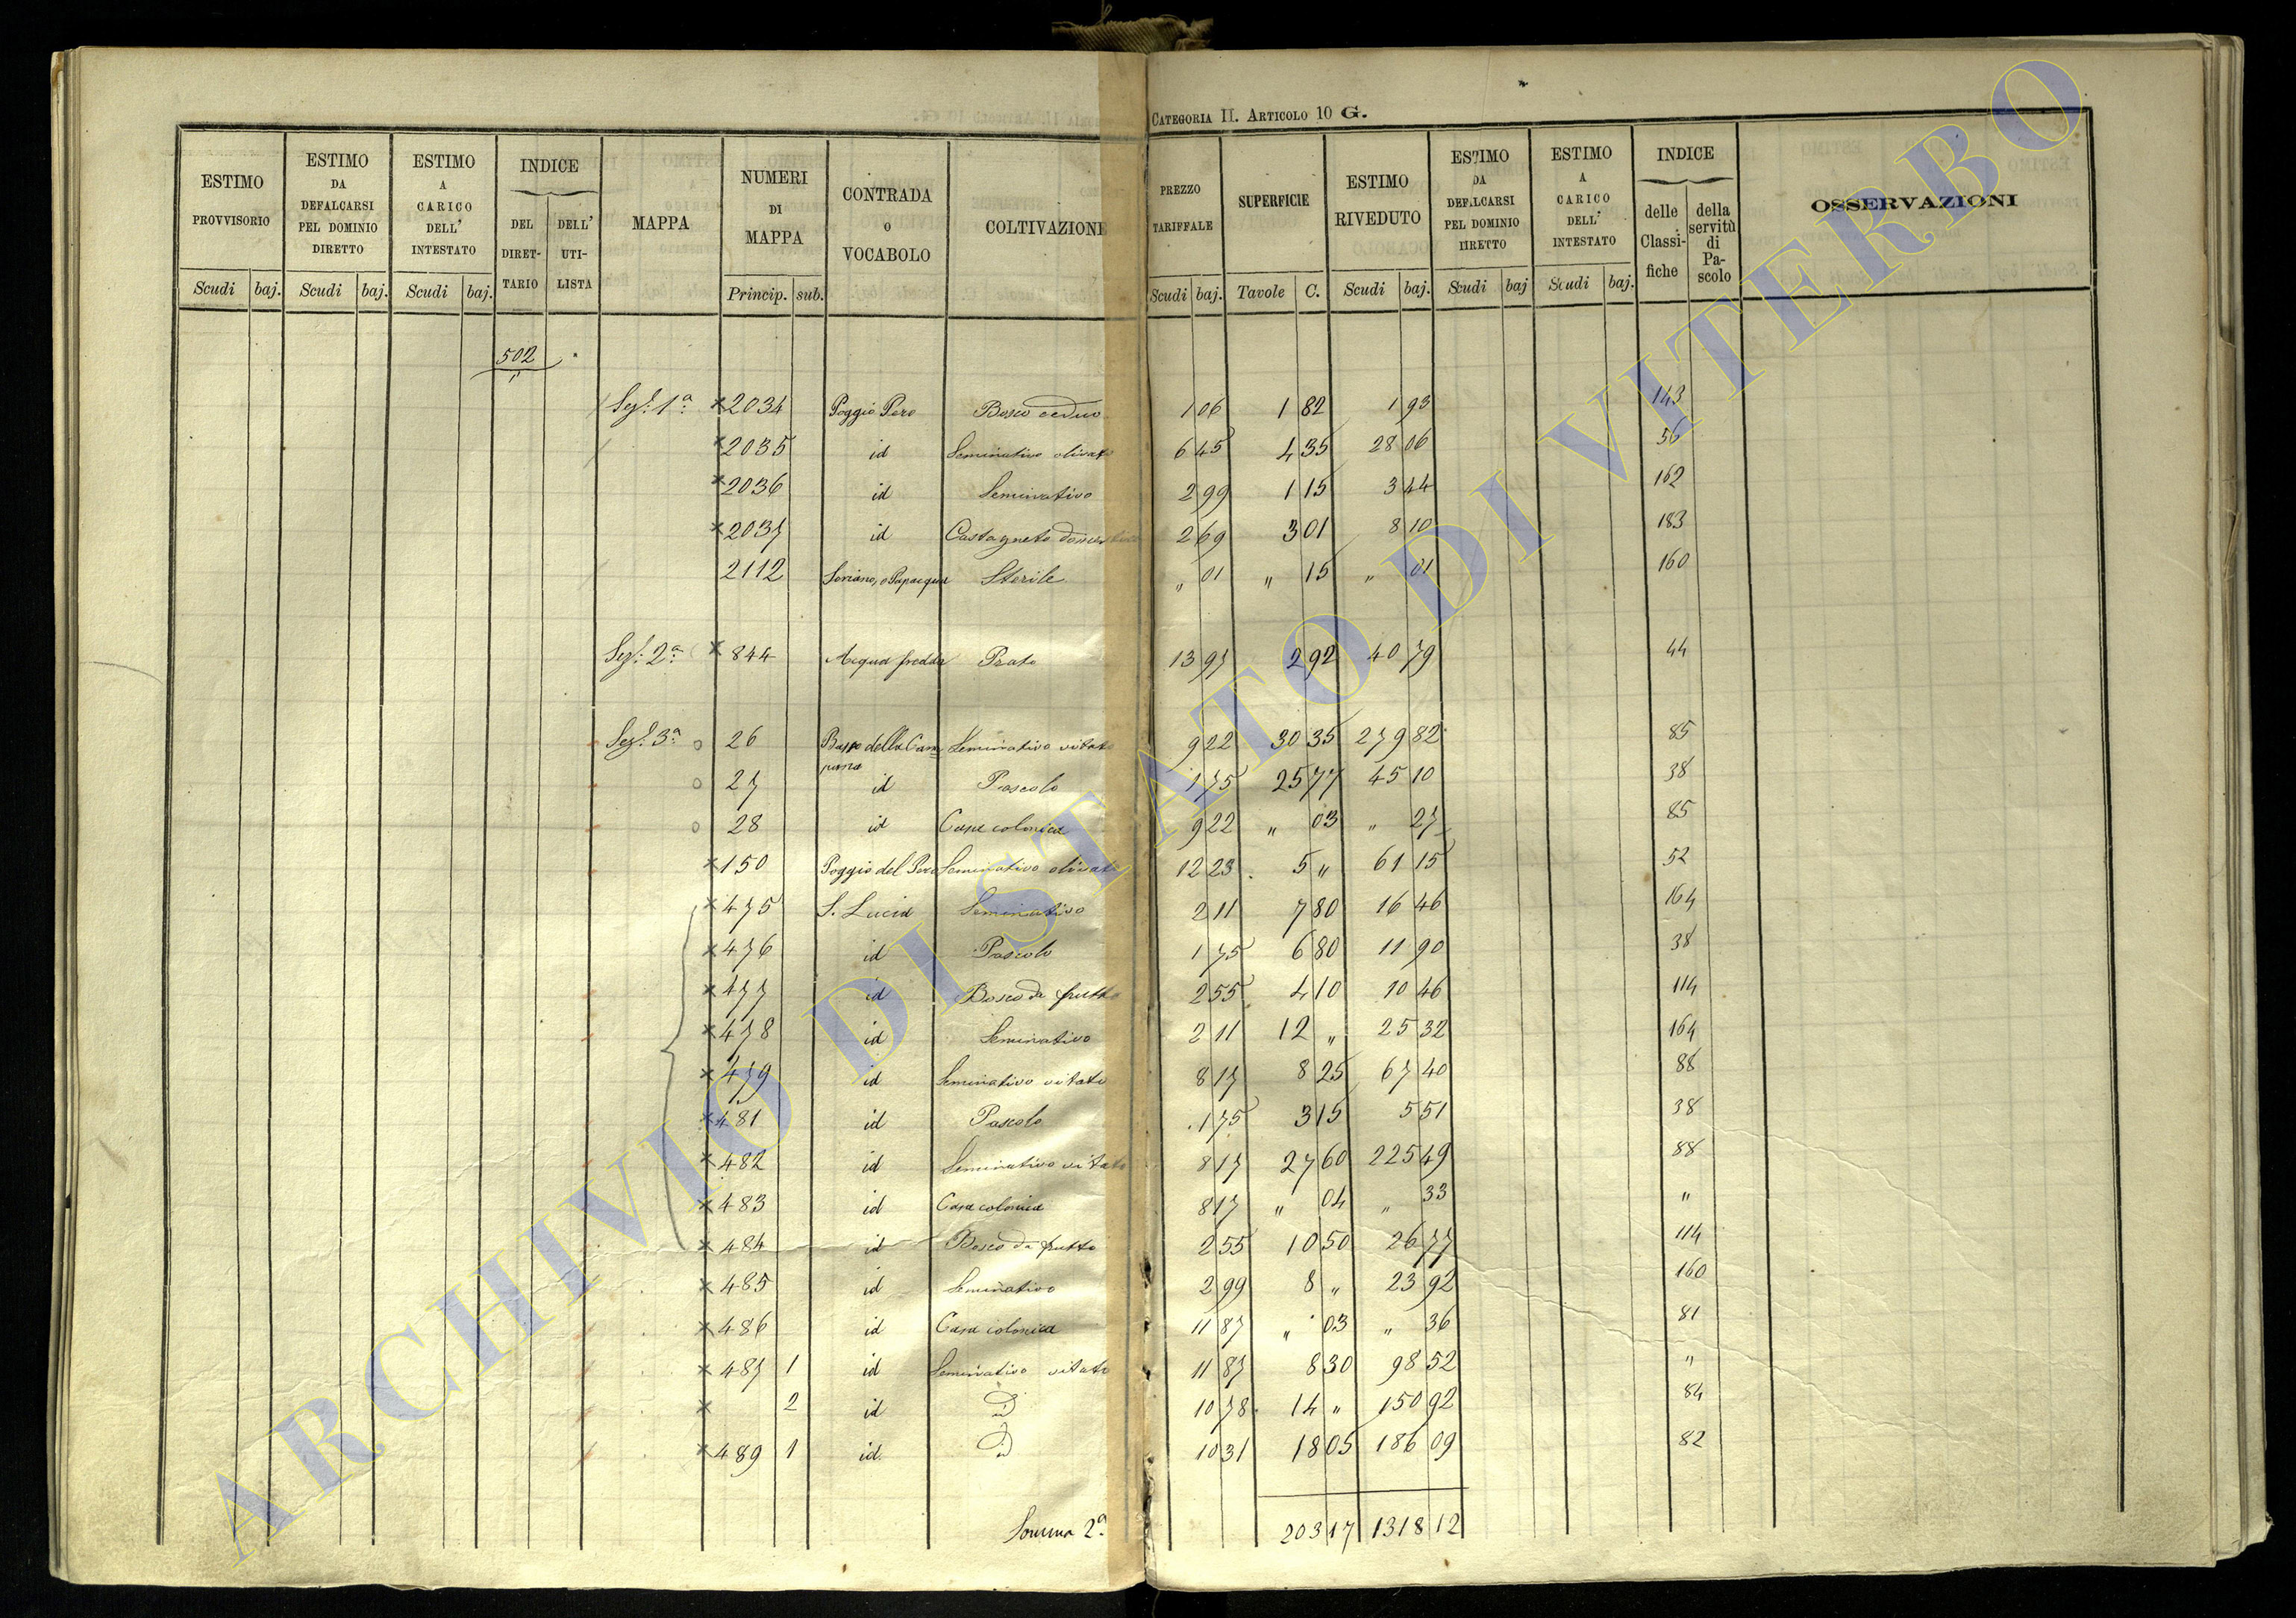 CATEGORIA II. ARTICOLO 10 G.
ESTIMO PROVVISORIO | ESTIMO DA DEFALCARSI PEL DOMINIO DIRETTO | ESTIMO A CARICO DELL' INTESTATO | INDICE DEL DIRET-TARIO | DELL' UTI-LISTA | MAPPA | NUMERI DI MAPPA | CONTRADA O VOCABOLO | COLTIVAZIONE | PREZZO TARIFFALE | SUPERFICIE | ESTIMO RIVEDUTO | ESTIMO DA DEFALCARSI PEL DOMINIO DIRETTO | ESTIMO A CARICO DELL' INTESTATO | INDICE delle Classi-fiche | della servitù di Pa-scolo | OSSERVAZIONI
Scudi | baj. | Scudi | baj. | Scudi | baj. | Princip. | sub. | Scudi | baj. | Tavole | C. | Scudi | baj. | Scudi | baj | Scudi | baj.
502
Sez. 1ª | × 2034 | Poggio Pero | Bosco ceduo | 1 06 | 1 82 | 1 93 | 143
× 2035 | id | Seminativo olivato | 6 45 | 4 35 | 28 06 | 56
× 2036 | id | Seminativo | 2 99 | 1 15 | 3 44 | 162
× 2037 | id | Castagneto | 2 69 | 3 01 | 8 10 | 183
2112 | Soriano, o Papacqua | Sterile | " 01 | " 15 | " 01 | 160
Sez. 2ª | × 844 | Acqua fredda | Prato | 13 97 | 2 92 | 40 79 | 44
Sez. 3ª | o 26 | della Cam pana | Seminativo vitato | 9 22 | 30 35 | 279 82 | 85
o 27 | id | Pascolo | 1 75 | 25 77 | 45 10 | 38
o 28 | id | Casa colonica | 9 22 | " 03 | " 27 | 85
× 150 | Poggio del Pero | Seminativo olivato | 12 23 | 5 " | 61 15 | 52
× 475 | S. Lucia | Seminativo | 2 11 | 7 80 | 16 46 | 164
× 476 | id | Pascolo | 1 75 | 6 80 | 11 90 | 38
× 477 | id | Bosco da frutto | 2 55 | 4 10 | 10 46 | 114
× 478 | id | Seminativo | 2 11 | 12 " | 25 32 | 164
× 479 | id | Seminativo vitato | 8 17 | 8 25 | 67 40 | 88
× 481 | id | Pascolo | 1 75 | 3 15 | 5 51 | 38
× 482 | id | Seminativo vitato | 8 17 | 27 60 | 225 49 | 88
× 483 | id | Casa colonica | 8 17 | " 04 | " 33 | "
× 484 | id | Bosco da frutto | 2 55 | 10 50 | 26 77 | 114
× 485 | id | Seminativo | 2 99 | 8 " | 23 92 | 160
× 486 | id | Casa colonica | 11 87 | " 03 | " 36 | 81
× 487 | 1 | id | Seminativo vitato | 11 87 | 8 30 | 98 52 | "
× | 2 | id | id | 10 78 | 14 " | 150 92 | 84
× 489 | 1 | id | id | 10 31 | 18 05 | 186 09 | 82
Somma 2ª | 203 17 | 1318 12
ARCHIVIO DI STATO DI VITERBO